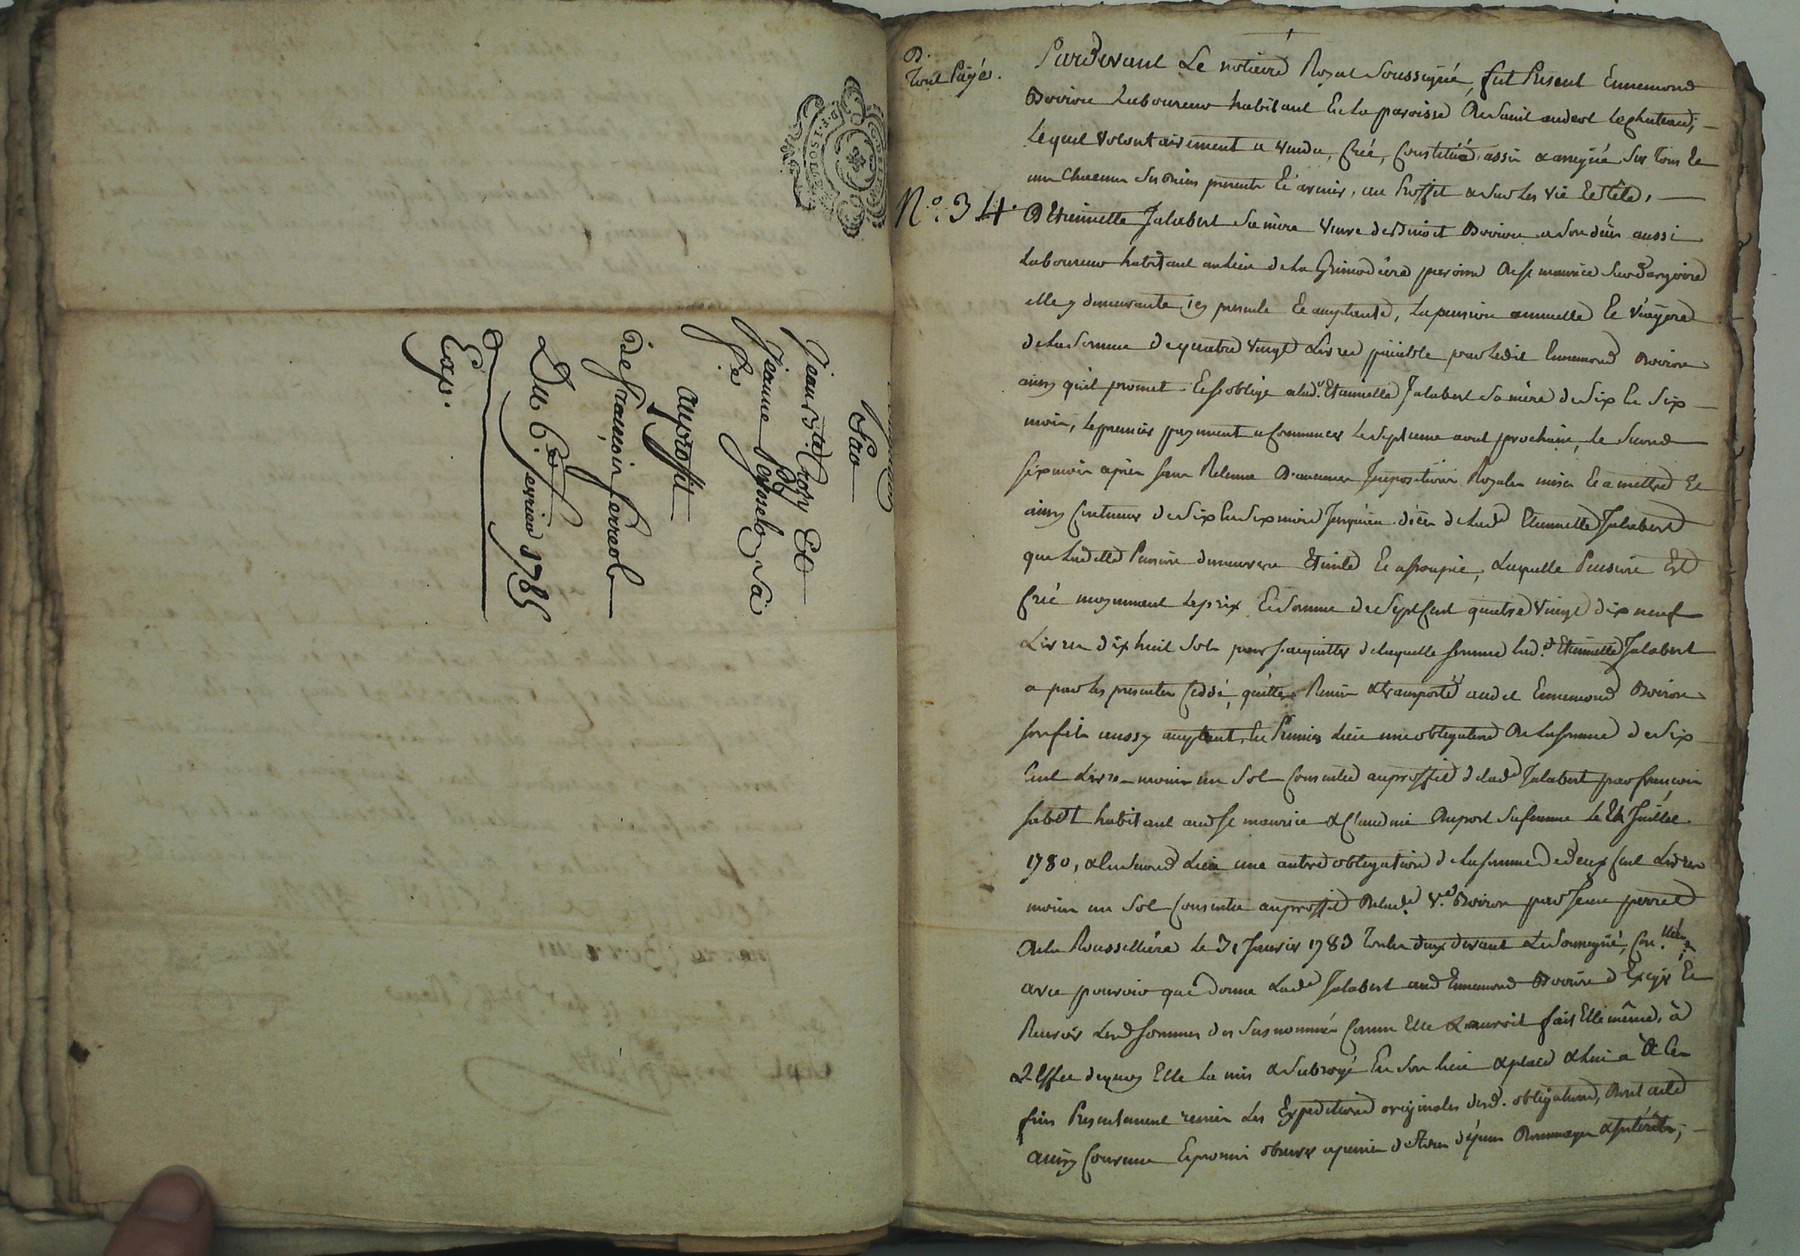 Par
Jean B.te Choзy Et
Jeanne
f.e
auproffit
de françois ferreol
Du 6.e fevrier 1785
Exp.
D.
Tout Payé.
Pardevant Le notaire Royal Soussigné, fut Present Ennemond
Boiron Laboureur habitant En la paroisse De Saint andeol Lechateau;
Lequel volontairement a vendu, Créé, Constitué, assis & assigné Sur Tous Et
un Chacuns Ses Biens presents Et avenir, au Proffit & Sur les vie Et tête,
N.o 34.
D'Etiennette Jalabert Sa mère veuve de Benoit Boiron a Son décès aussi
Laboureur habitant au lieu de La Grimodière paroisse De St maurice Sur Dargoire
elle y demeurante, icy presente Et acceptante, La pension annuelle Et viagere
de La Somme de quatre vingt Livres païable par Ledit Ennemond Boiron
ainsy qu'il promet Et S'oblige a lad.e Etiennette Jalabert Sa mère de Six En Six
mois, Le premier payment a Commencer Le Sept aout prochain, Le Second
Six mois après Sans Retenue D'aucunes Impositions Royales mises Et a mettre Et
ainsy Continuer de Six En Six mois Jusqu'au décès de Lad.e Etiennette Jalabert
que Laditte Pension demeurera Eteinte Et assoupie, Laquelle Pension Est
Créé moyennant Le prix Et Somme de Sept Cent quatre vingt dix neuf
Livres dix huit Sols pour S'acquitter de laquelle Somme Lad.e Etiennette Jalabert
a par les presentes Cedde, quitté, Remis & transporté audit Ennemond Boiron
Son fils aussy acceptant, En Premier Lieu une obligation De La Somme de Six
Cent Livres moins un Sol Consentie auproffit de Lad.e Jalabert par françois
habitant aud St maurice & Claudine Duport Sa femme Le Juillet
1780, & En Second Lieu une autre obligation de La Somme de deux Cent Livres
moins un Sol Consentie auproffit De Lad.e V.e Boiron par Jean perret
De la Rousselliére Le 31 Janvier 1783 Toutes deux devant Le Soussigné, Con.llées
avec pouvoir que donne Lad.e Jalabert aud Ennemond Boiron d'Exiger Et
Recevoir Lesd Sommes des Susnommés Comme Elle L'auroit fait Elle même, à
L'Effet de quoy Elle La mis & Subrogé En Son Lieu & place & Lui a à Ces
fins Presentement remis Les Expeditions originales desd. obligations, Dont acte
ainsy Convenu Et promis observer a peine de tous dépens Dommages & Intérêts;